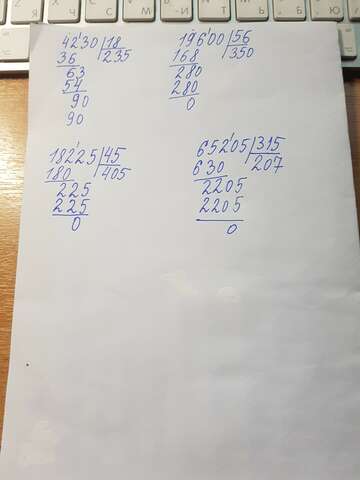 4230 18
36 235
63
54
90
90
19600 56
168 350
280
280
0
18225 45
180 405
225
225
0
65205 315
630 207
2205
2205
0